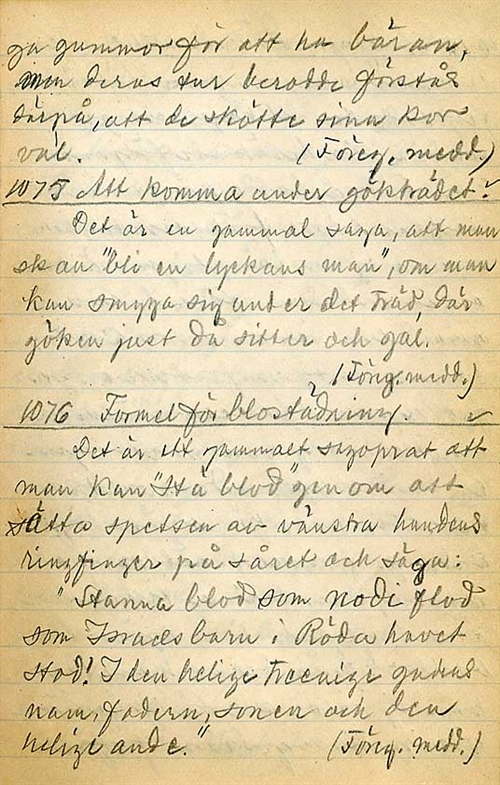 ga gummor för att ha bäran,
men deras tur berodde förstås
därpå, att de skötte sina kor
väl. (Föreg. medd.)
1075 Att komma under gökträdet.
Det är en gammal saga, att man
skau "bli en lyckans man", om man
kan smyga sig under det träd, där
göken just då sitter och gal.
(Föreg. medd.)
1076 Formel för blostädning.
Det är ett gammalt sagoprat att
man kan "stä blod" genom att
sätta spetsen av vänstra handens
ringfinger på såret och säga:
"Stanna blod som nodi flod
som Israels barn i Röda havet
stod! I den helige treenige guds
nam, fadern, sonen och den
helige ande." (Föreg. medd.)